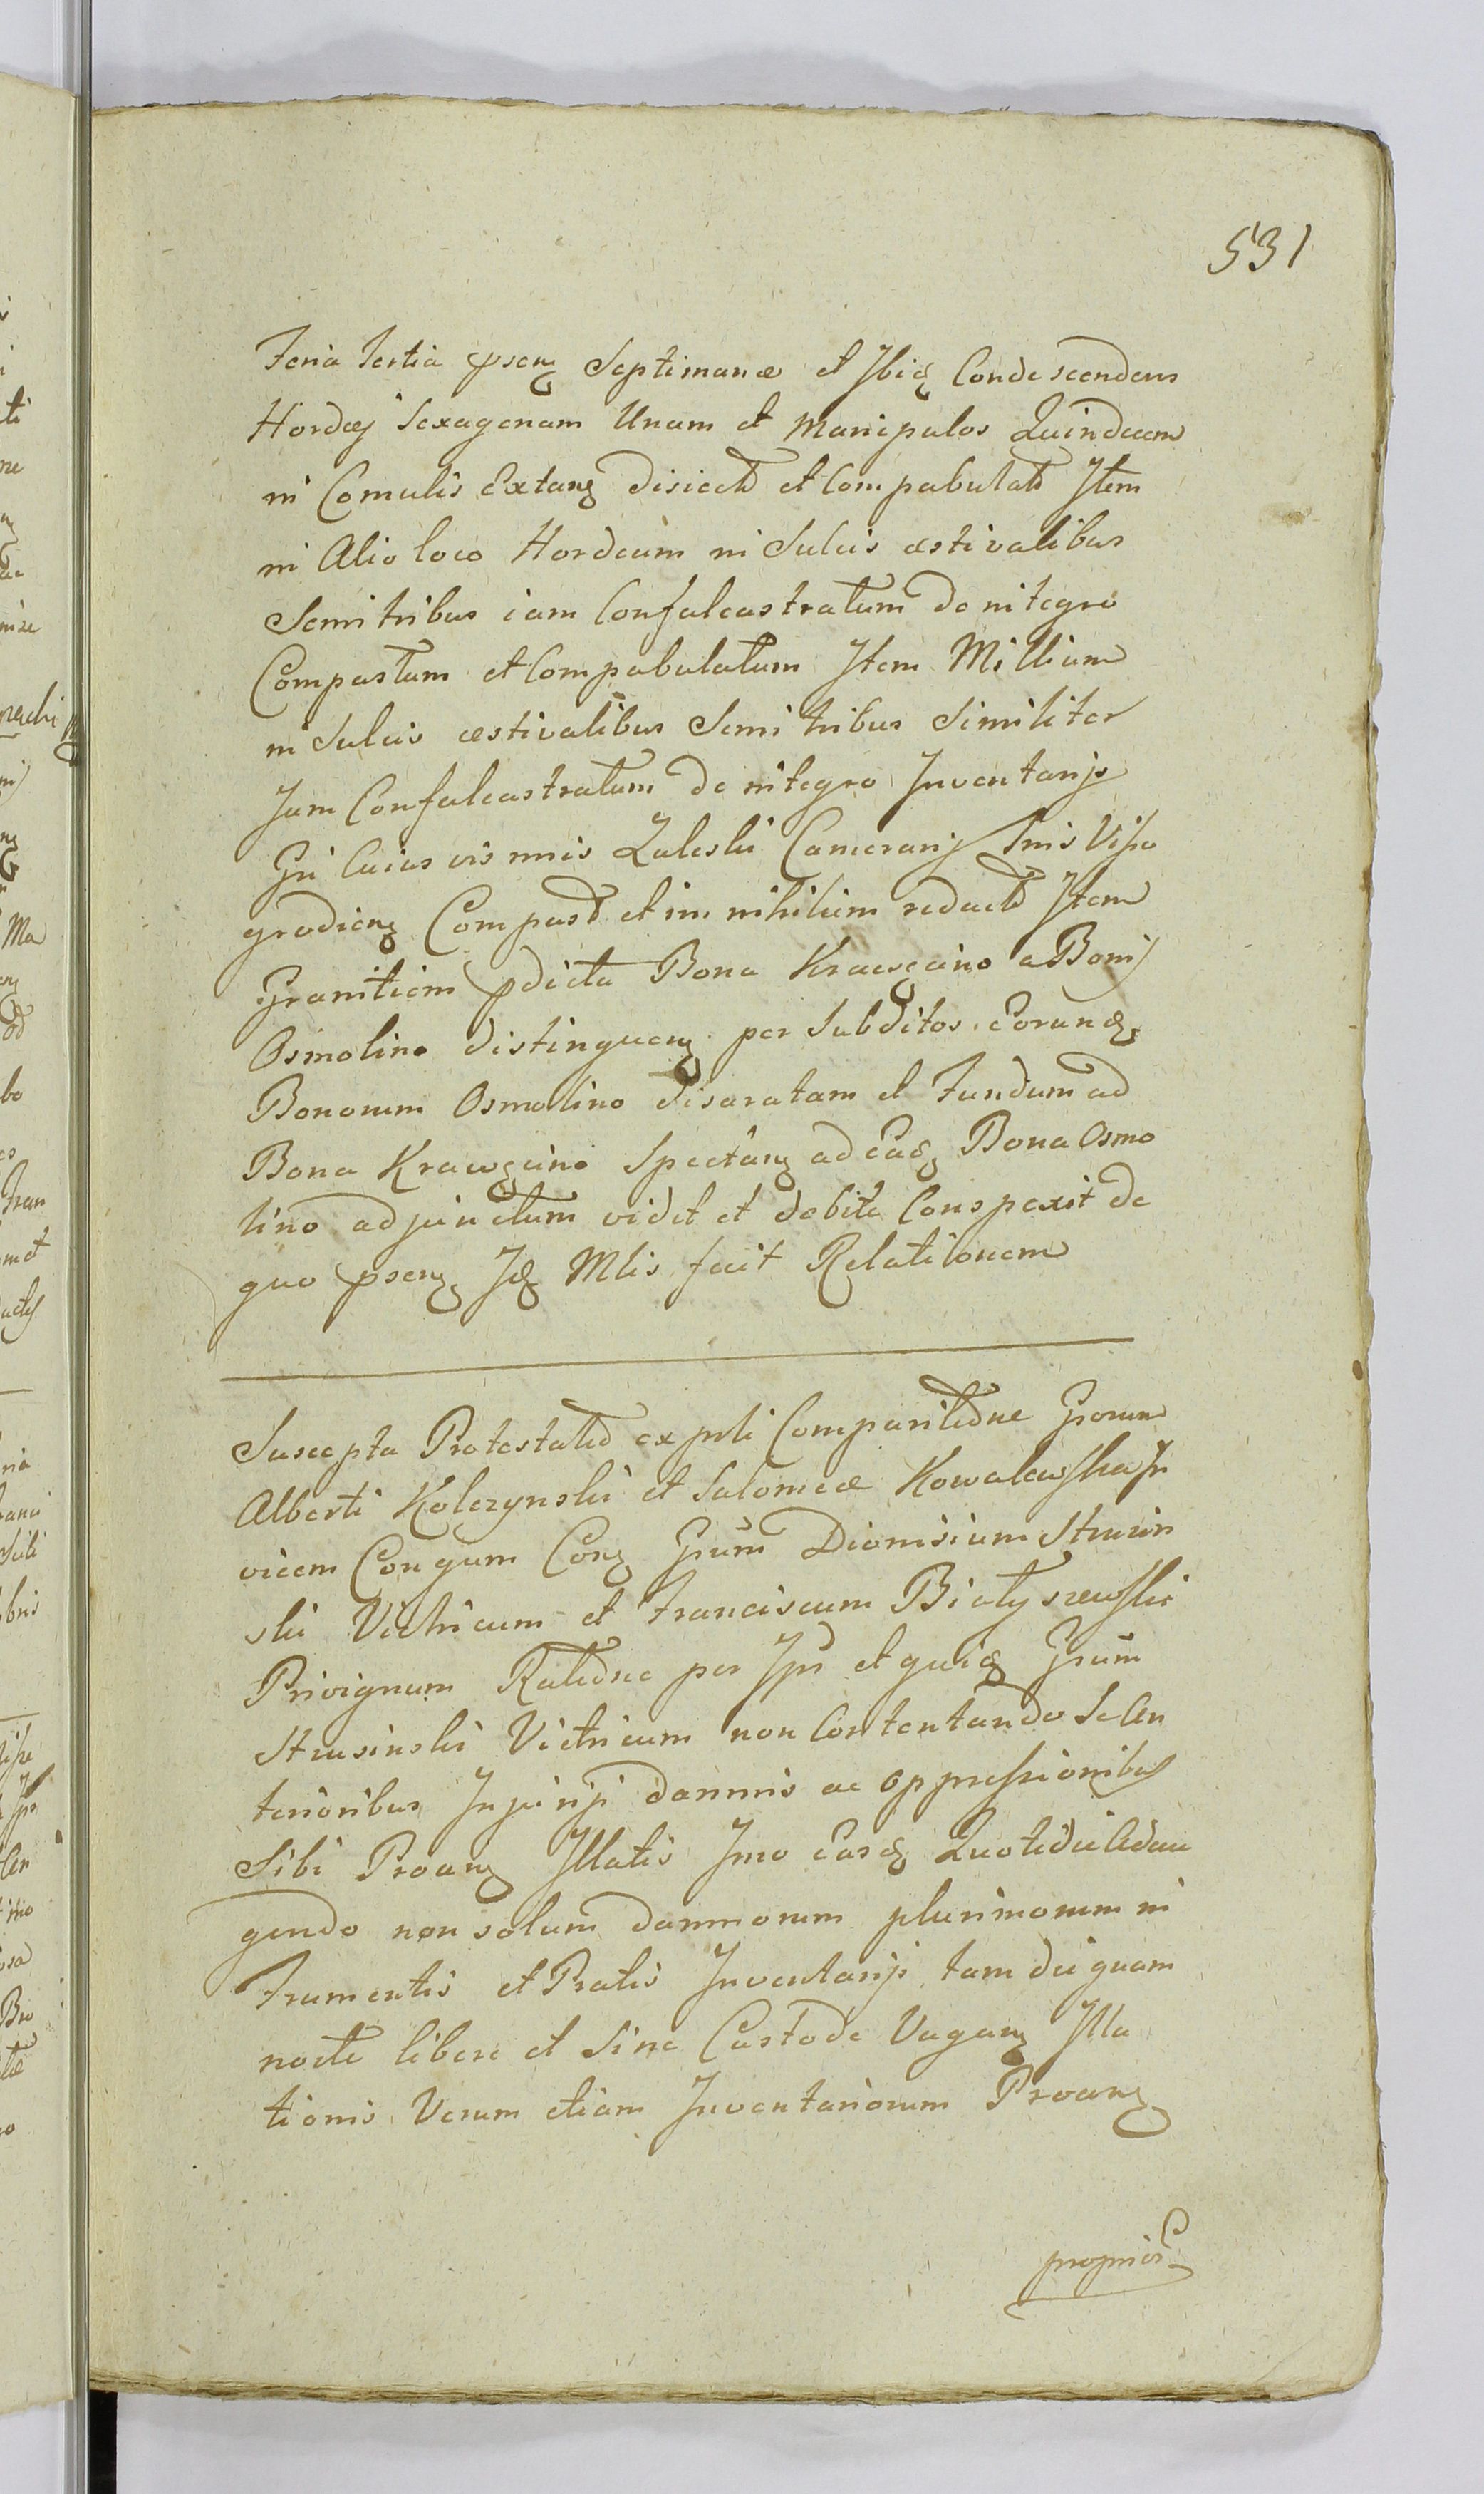 531
Feria tertia psenʒ Septimanæ et Ibiq Condescendens
Hordej Sexagenam Unam et Manipulos Quindecem
in Comulis Extanʒ disiect et Compabulat Item
in Alio loco Hordeum in Sulcis æstivalibus
Semi tribus iam Confalcastratum de integro
Compastum et Compabulatum Item Millium
in Sulcis æstivalibus Semi tribus Similiter
Jam Confalcastratum de integro Inventarijs
Gñi Zaleski Camerarij Viso
gredienʒ Compast et in nihilum redact Item
Granitiem pdicta Bona Krawęcino a Bonij
Osmolino distinguenʒ per Subditos Eorundʒ
Bonorum Osmolino disaratam et Fundum ad
Bona Krawęcino Spectanʒ ad Eadʒ Bona Osmo
lino adjunctum videt et debite Conspexit de
quo psenʒ Idʒ Mlis facit Relationem
Suscepta Protestatio ex Comparitione Gñorum
Alberti Kolczynski et Salomeæ Kowalewska In
vicem Con gum Conʒ Gñum Dionisium Strusin
ski Victricum et Franciscum Białyszewski
Privignum Ratione per et quidʒ Gñum
Strusinski Victricum non Contentando Se An
terioribus Injurijs damnis ac oppressionibus
Sibi Proanʒ Illatis Imo Easdʒ Quotidie Adau
gendo non solum damnorum plurimorum in
Frumentis et Pratis Inventarijs tam die quam
nocte libere et Sine Custode Vaganʒ Illa
tionis Verum etiam Inventariorum Proanʒ
propriorʒ